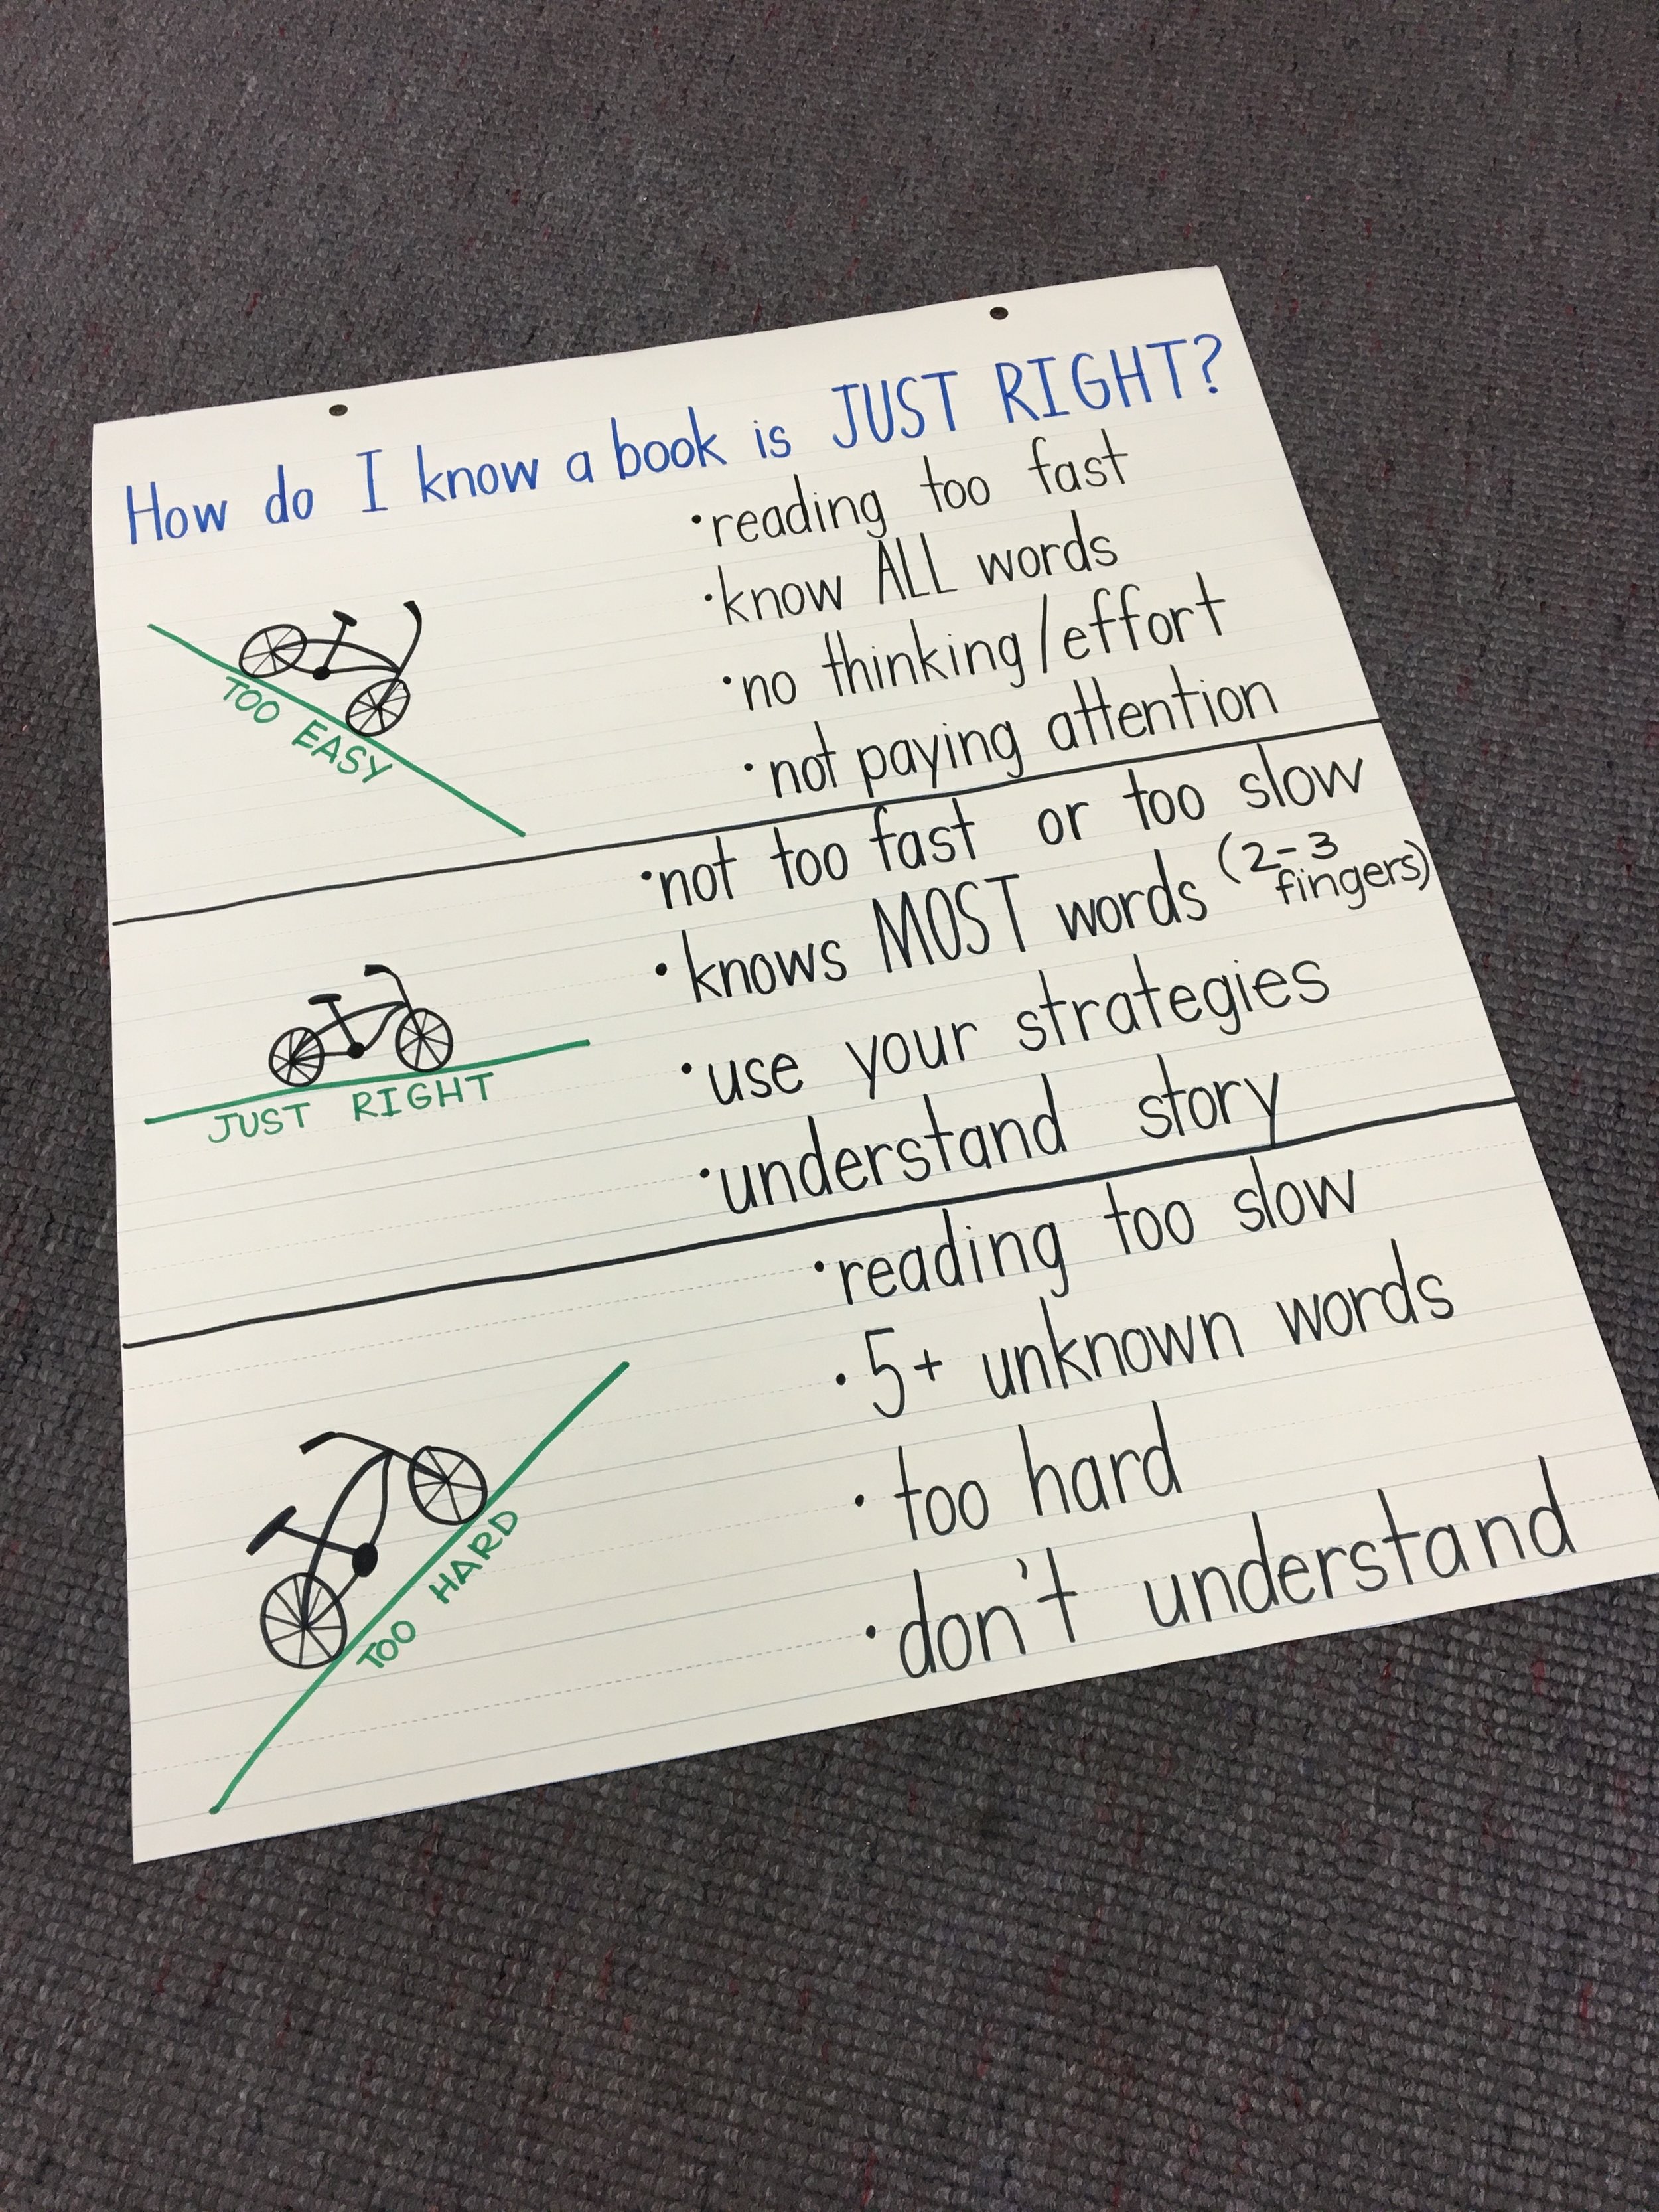 How do I know a book is JUST RIGHT?
TOO EASY
• reading too fast
• know ALL words
• no thinking/effort
• not paying attention
JUST RIGHT
• not too fast or too slow
• knows MOST words (2-3 fingers)
• use your strategies
• understand story
TOO HARD
• reading too slow
• 5+ unknown words
• too hard
• don't understand